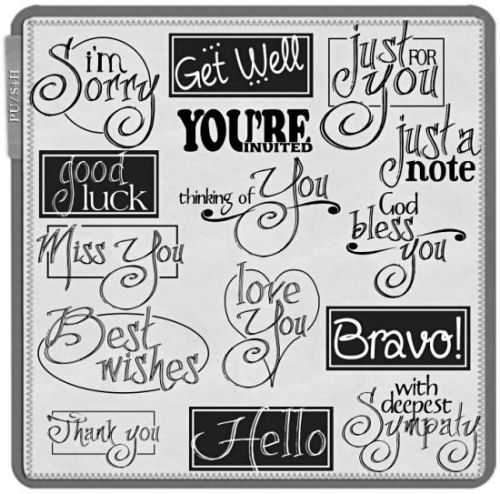 PU/S4H
i'm
Sorry
Get Well
just
FOR
you
YOU'RE
INVITED
just a
note
good
luck
thinking of You
God
bless
you
Miss You
love
You
Best
wishes
Bravo!
Thank you
Hello
with
deepest
Sympaty